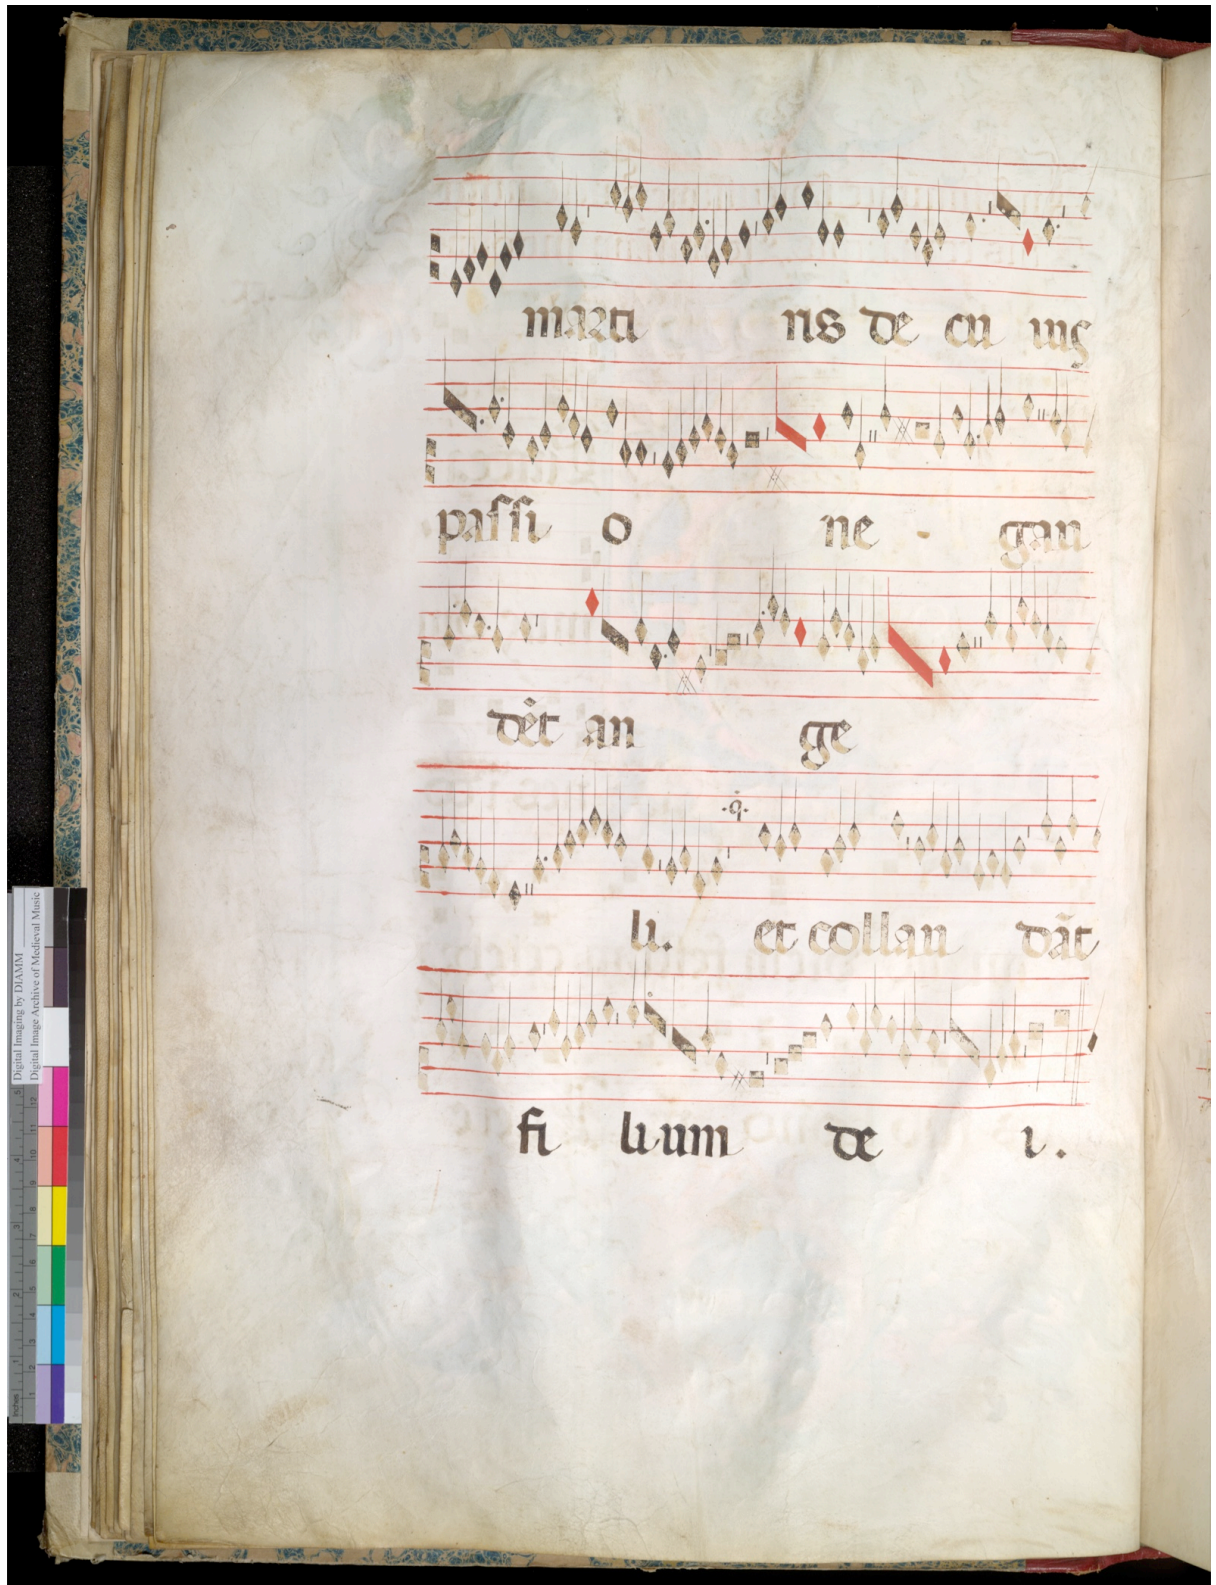 marti ris de cu ius
passi o ne - gau
dēt an ge
li. et collau dāt
fi lium de i.
Digital Imaging by DIAMM
Digital Image Archive of Medieval Music
inches